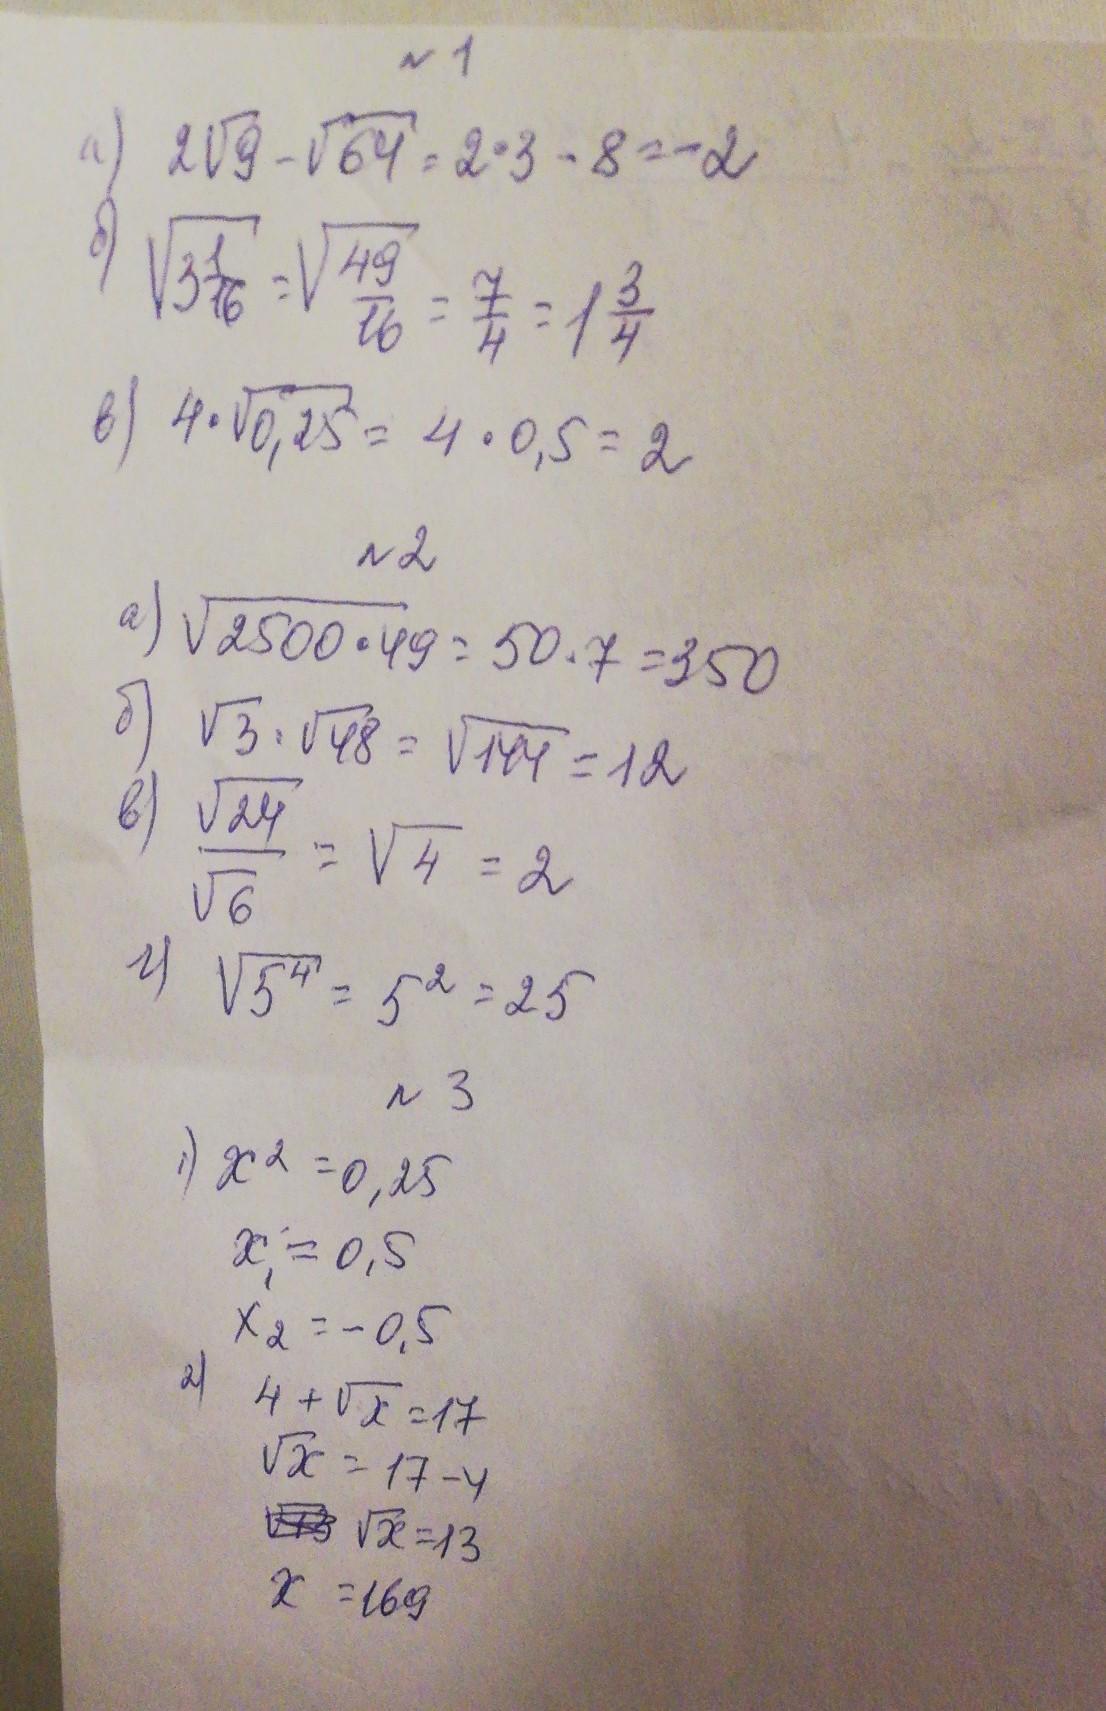 №1
а) 2√9 - √64 = 2·3 - 8 = -2
б) √(3 1/16) = √(49/16) = 7/4 = 1 3/4
в) 4·√0,25 = 4·0,5 = 2
№2
а) √(2500·49) = 50·7 = 350
б) √3·√48 = √144 = 12
в) √24/√6 = √4 = 2
г) √5⁴ = 5² = 25
№3
1) x² = 0,25
x₁ = 0,5
x₂ = -0,5
2) 4 + √x = 17
√x = 17 - 4
√x = 13
x = 169